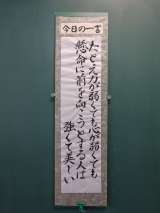 今日の一言
たとえ力が弱くても心が弱くても
懸命に前を向こうとする人は
強くて美しい